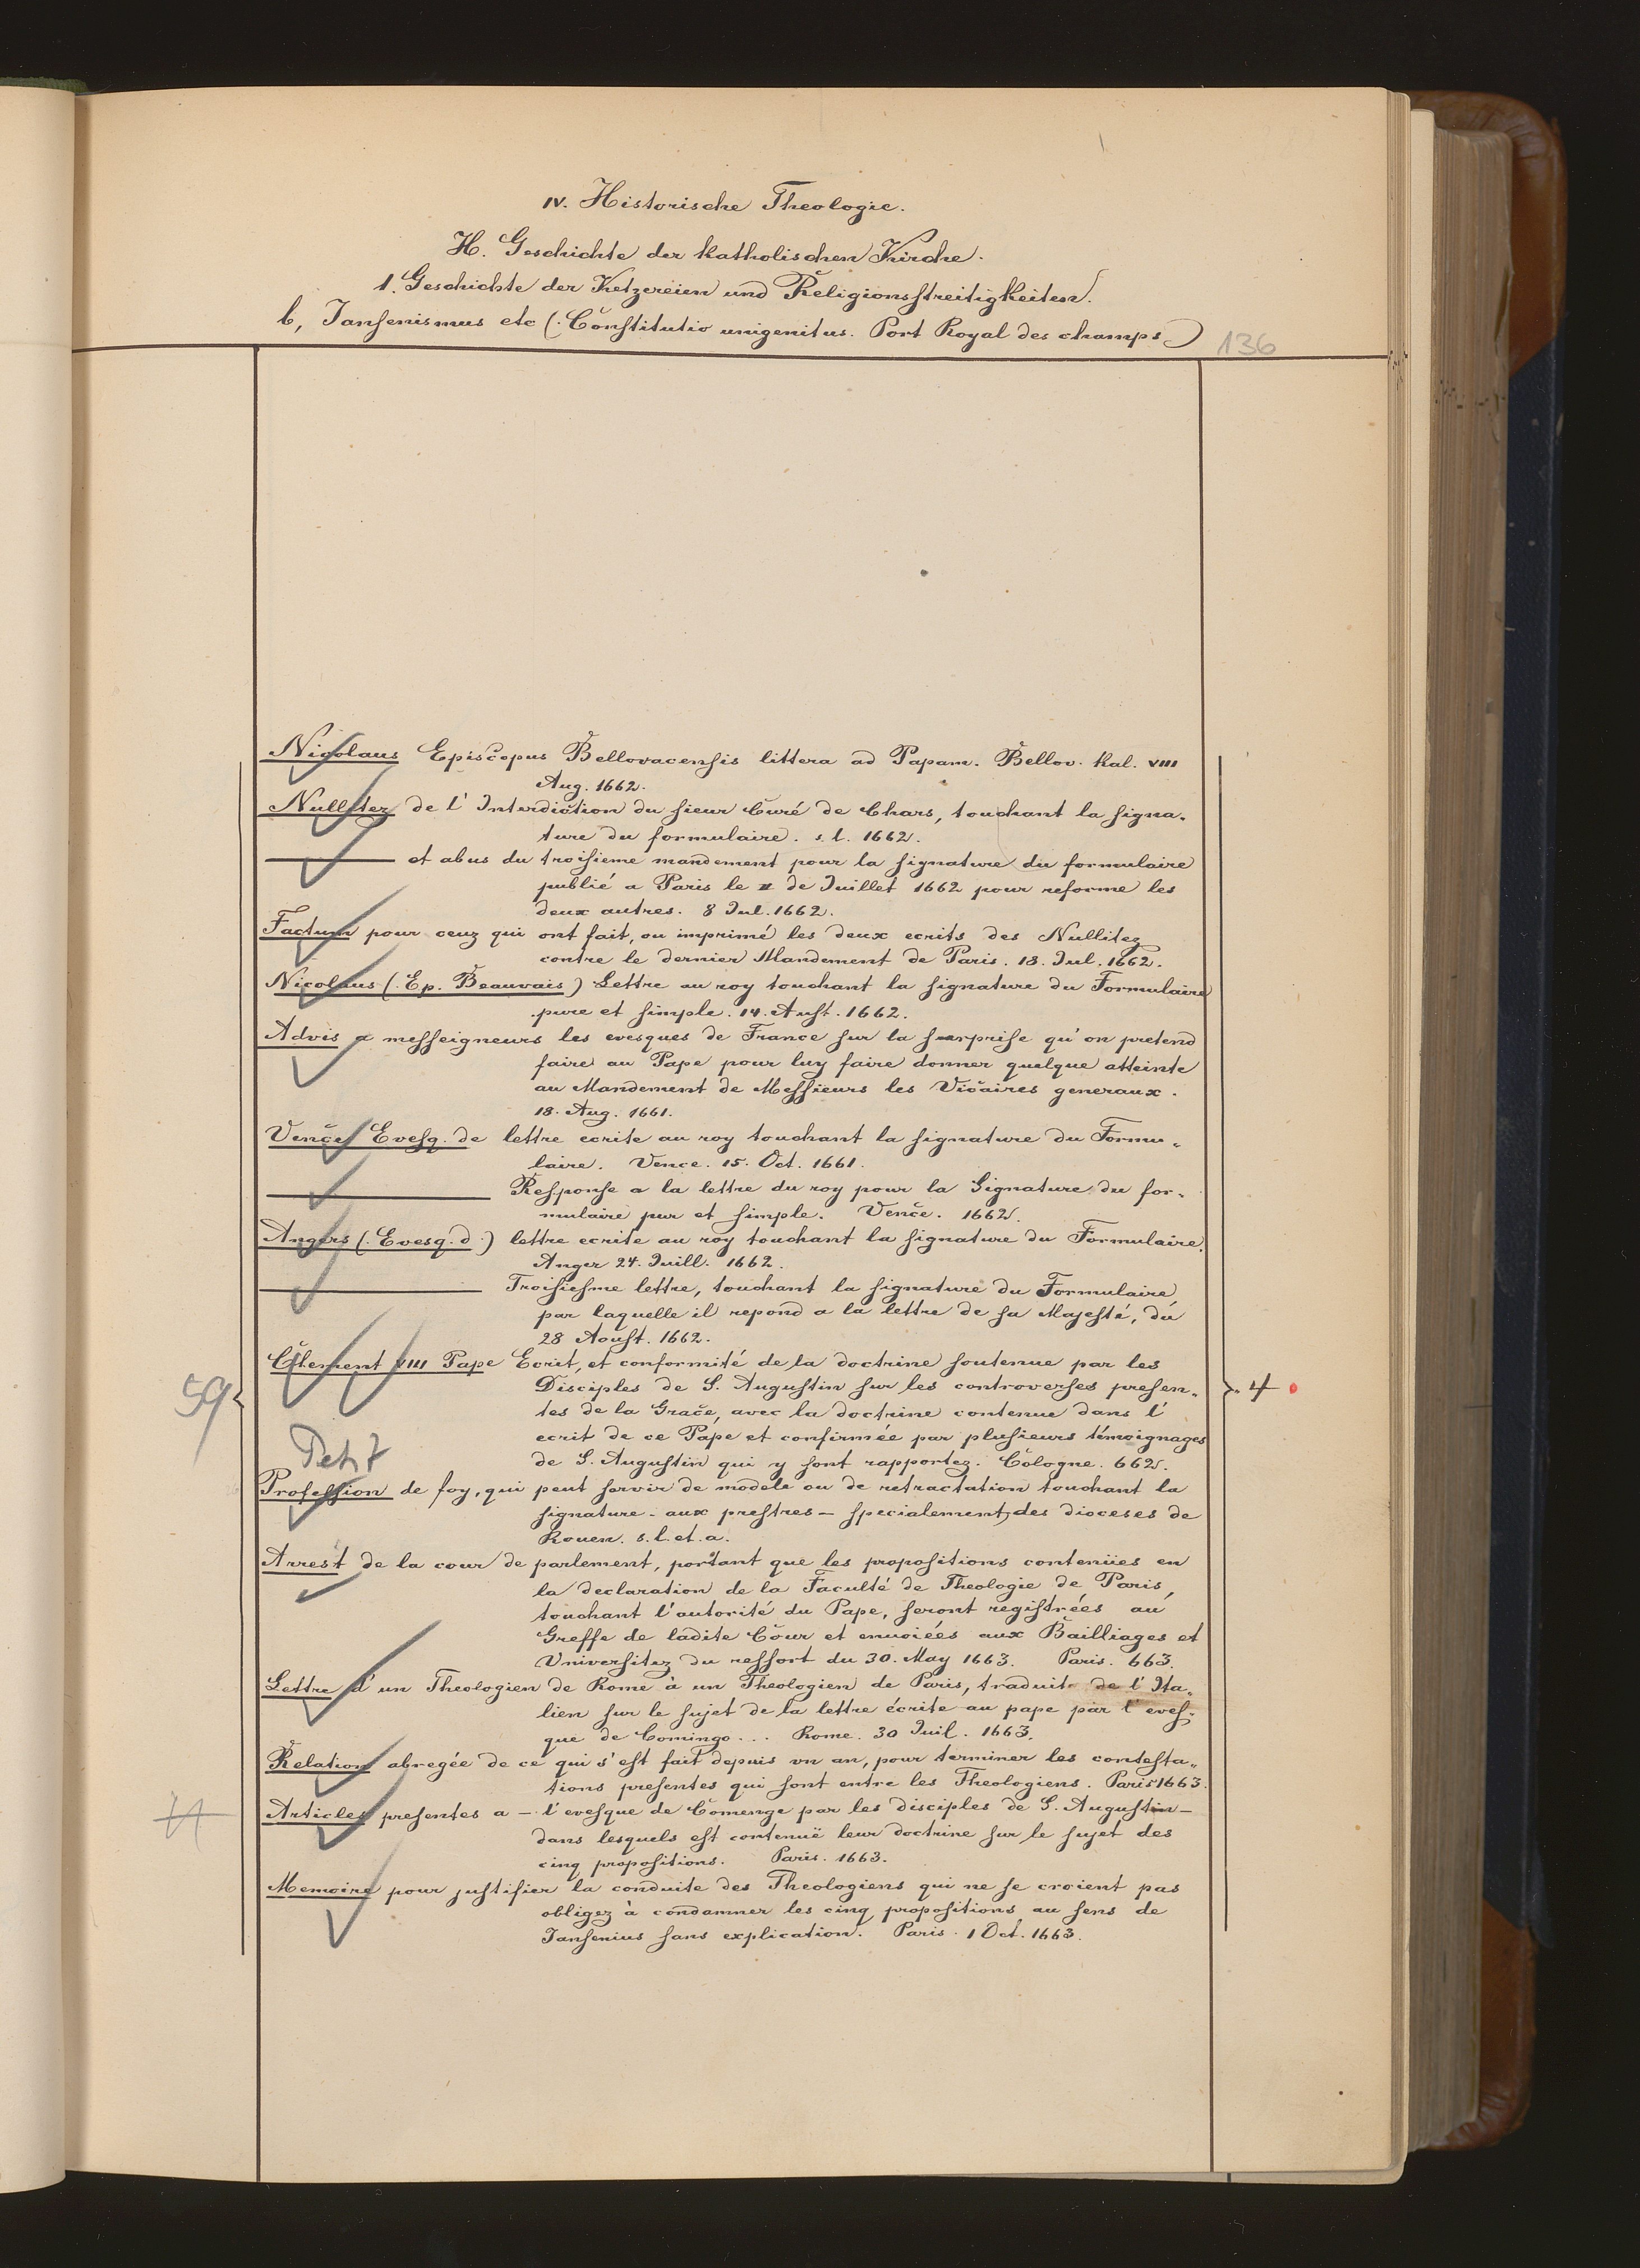 IV. Historische Theologie.
H. Geschichte der katholischen Kirche.
1. Geschichte der Ketzereien und Religionsstreitigkeiten.
b, Jansenismus etc (. Constitutio unigenitus. Port Royal des champs)
136
Nicolaus Episcopus Bellovacensis littera ad Papam. Bellov. Kal. VIII
Aug. 1662.
Nullitez de l' Interdiction du sieur Curé de Chars, touchant la signa-
ture du formulaire. s. l. 1662.
——— et abus du troisieme mandement pour la signature du formulaire
publié a Paris le 2 de Juillet 1662 pour reforme les
deux autres. 8 Jul. 1662.
Factum pour ceuz qui ont fait, ou imprimé les deux ecrits des Nullitez
contre le dernier Mandement de Paris. 18. Jul. 1662.
Nicolaus (. Ep. Beauvais) Lettre au roy touchant la signature du Formulaire
pure et simple. 14. Aust. 1662.
Advis a messeigneurs les evesques de France sur la surprise qu'on pretend
faire au Pape pour luy faire donner quelque atteinte
au Mandement de Messieurs les Vicaires generaux.
18. Aug. 1661.
Vence Evesq. de lettre ecrite au roy touchant la signature du Formu-
laire. Vence. 15. Oct. 1661.
——— Response a la lettre du roy pour la Signature du for-
mulaire pur et simple. Vence. 1662.
Angers (. Evesq. d.) lettre ecrite au roy touchant la signature du Formulaire.
Anger 24. Juill. 1662.
——— Troisiesme lettre, touchant la signature du Formulaire
par laquelle il repond a la lettre de sa Majesté, du
28 Aoust. 1662.
Clement VIII Pape Ecrit, et conformité de la doctrine soutenue par les
59
Disciples de S. Augustin sur les controverses presen-
4
tes de la Grace, avec la doctrine contenue dans l'
ecrit de ce Pape et confirmée par plusieurs témoignages
Petit
de S. Augustin qui y sont rapportez. Cologne. 662.
Profession de foy, qui peut servir de modele ou de retractation touchant la
signature - aux prestres - specialement des dioceses de
Rouen. s. l. et. a.
Arrest de la cour de parlement, portant que les propositions contenües en
la declaration de la Faculté de Theologie de Paris,
touchant l'autorité du Pape, seront registrées au
Greffe de ladite Cour et envoiées aux Bailliages et
Universitez du ressort du 30. May 1663. Paris. 663.
Lettre d'un Theologien de Rome à un Theologien de Paris, traduit de l'Ita-
lien sur le sujet de la lettre écrite au pape par l'eves-
que de Comingo... Rome. 30 Juil. 1663.
Relation abregée de ce qui s'est fait depuis vn an, pour terminer les contesta-
tions presentes qui sont entre les Theologiens. Paris 1663.
Articles presentes a - l'evesque de Comenge par les disciples de S. Augustin -
dans lesquels est contenuë leur doctrine sur le sujet des
cinq propositions. Paris. 1663.
Memoire pour justifier la conduite des Theologiens qui ne se croient pas
obligez à condamner les cinq propositions au sens de
Jansenius sans explication. Paris. 1 Oct. 1663.